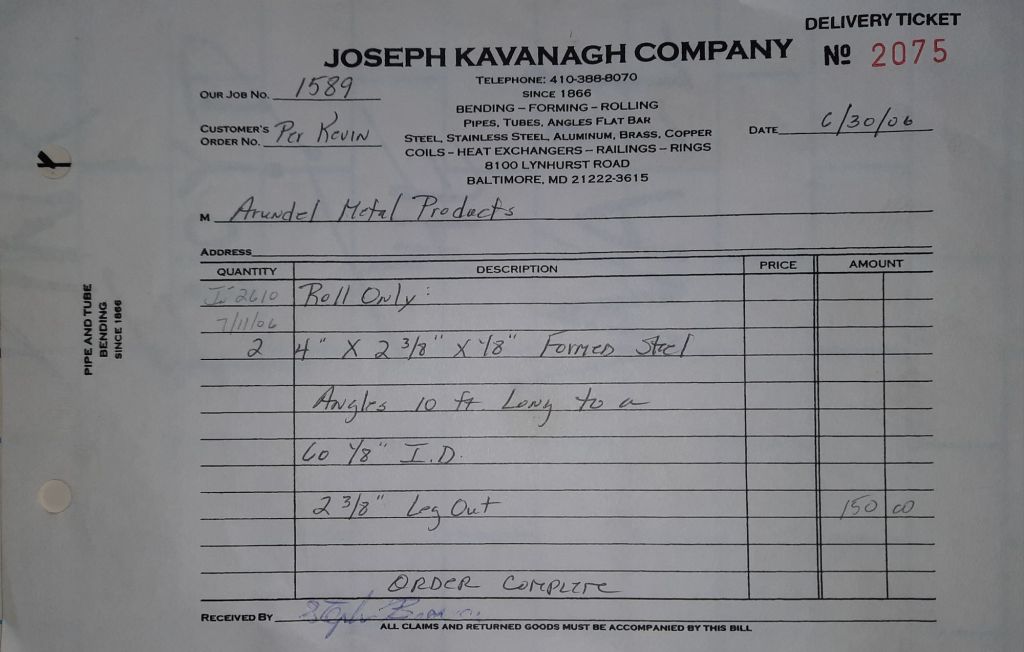 DELIVERY TICKET
JOSEPH KAVANAGH COMPANY
Nº 2075
TELEPHONE: 410-388-8070
SINCE 1866
BENDING – FORMING – ROLLING
PIPES, TUBES, ANGLES FLAT BAR
STEEL, STAINLESS STEEL, ALUMINUM, BRASS, COPPER
COILS – HEAT EXCHANGERS – RAILINGS – RINGS
8100 LYNHURST ROAD
BALTIMORE, MD 21222-3615
OUR JOB NO. 1589
CUSTOMER'S ORDER NO. Per Kevin
DATE 6/30/06
M Arundel Metal Products
ADDRESS
QUANTITY DESCRIPTION PRICE AMOUNT
2610 Roll Only:
7/11/06
2 4" X 2 3/8" X 1/8" Formed Steel
Angles 10 ft. Long to a
60 1/8" I.D.
2 3/8" Leg Out 150 00
ORDER COMPLETE
RECEIVED BY
ALL CLAIMS AND RETURNED GOODS MUST BE ACCOMPANIED BY THIS BILL
PIPE AND TUBE
BENDING
SINCE 1866